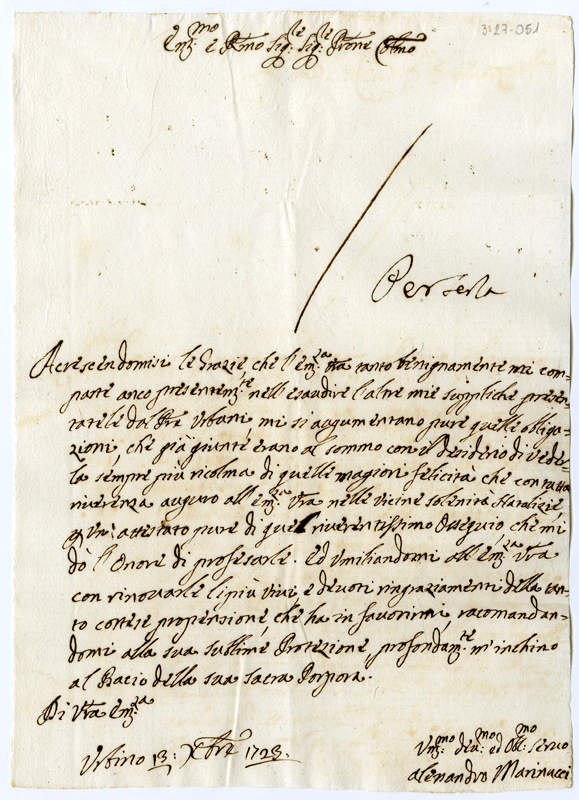 3:27-051
Em.mo e R.mo Sig.re Sig.re Prone Colmo
Acrescendomisi le Grazie, che l'Em.za Vra tanto benignamente mi com=
parte anco presentem.te nell'esaudire l'altre mie suppliche presen=
tatele dal Urbani mi si augumentano pure quelle obliga=
zioni, che già giunte erano al sommo con il desiderio di vede=
la sempre più ricolma di quelle magiori felicità che con tutta
riverenza auguro all'Em.za Vra nelle vicine solenità Natalizie,
p Un' attestato pure di quel riverentissimo Ossequio che mi
dò l'Onore di profesarle. Ed Umiliandomi all'Em.za Vra
con rinovarle li più vivi, e devoti ringraziamenti della tan=
to cortese propensione, che ha in favorirmi, racomandan=
domi alla sua sublime Protezione, profondam.te m'inchino
al Bacio della sua Sacra Porpora.
Di Vra Em.za
Urbino 13: Xbre 1723.
Um.mo dev.mo ed Obl.mo Servo
Alesandro Marinucci